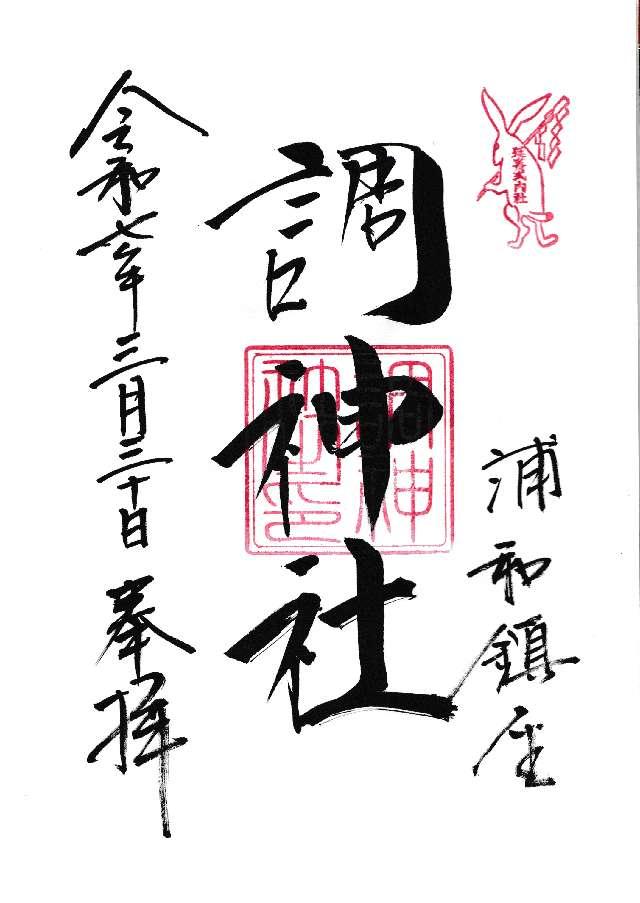 延喜式内社
浦和鎮座
調神社
調神社之印
令和七年三月三十日 奉拝